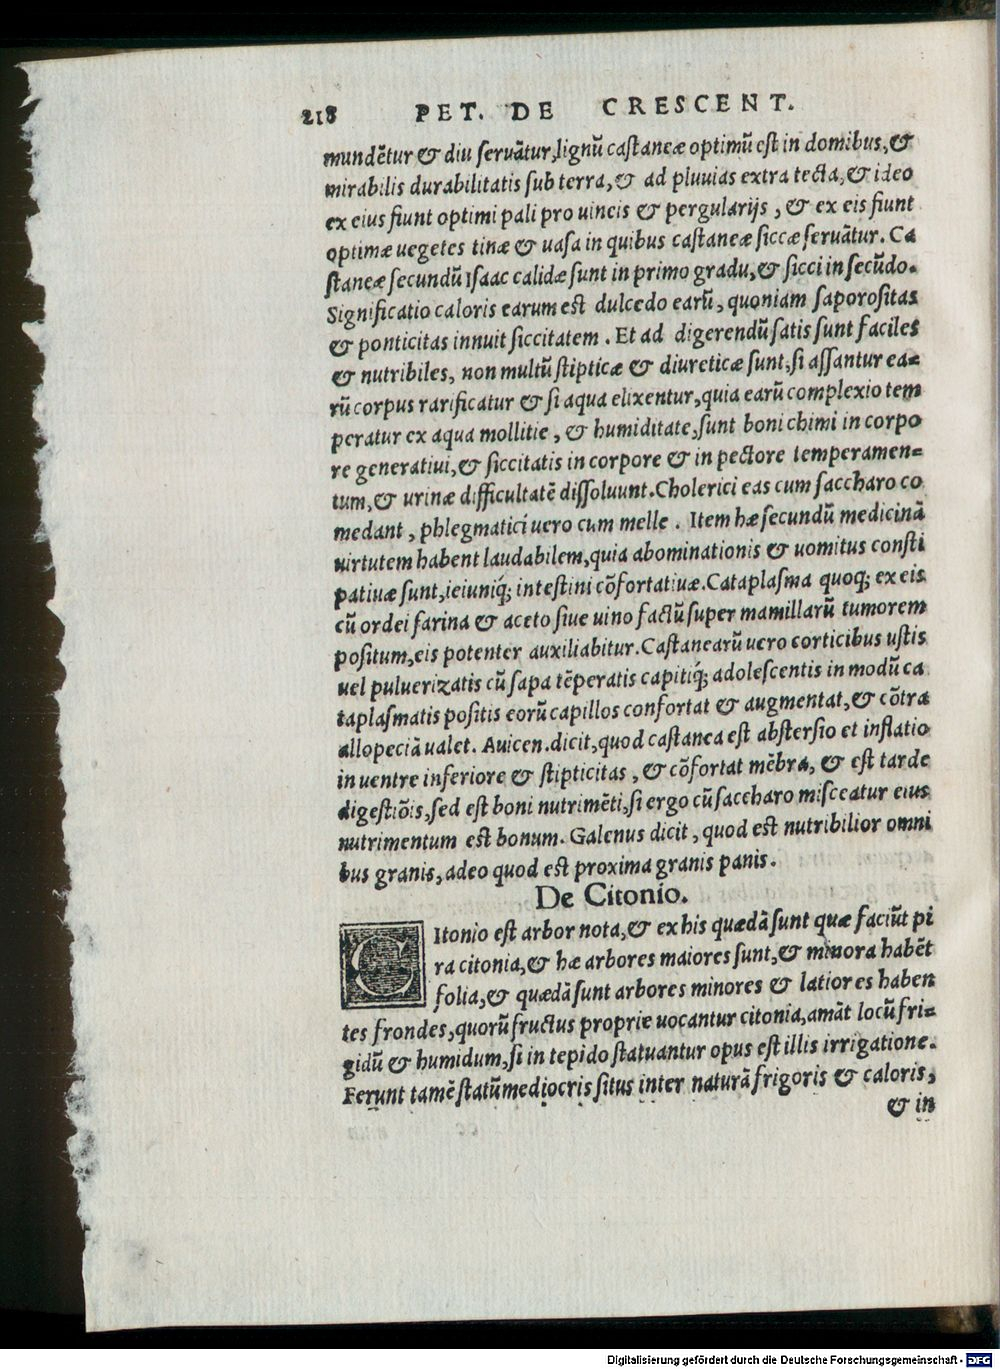 218 PET. DE CRESCENT.
mundētur & diu ſeruātur, lignū caſtaneæ optimū eſt in domibus, &
mirabilis durabilitatis ſub terra, & ad pluuias extra tecta, & ideo
ex eius fiunt optimi pali pro uincis & pergularijs, & ex eis fiunt
optimæ uegetes tinæ & uaſa in quibus caſtaneæ ſiccæ ſeruātur. Ca
ſtaneæ ſecundū Iſaac calidæ ſunt in primo gradu, & ſicci in ſecūdo.
Significatio caloris earum eſt dulcedo earū, quoniam ſaporoſitas
& ponticitas innuit ſiccitatem. Et ad digerendū ſatis ſunt faciles
& nutribiles, non multū ſtipticæ & diureticæ ſunt, ſi aſſantur ea=
rū corpus rarificatur & ſi aqua elixentur, quia earū complexio tem
peratur ex aqua mollitie, & humiditate, ſunt boni chimi in corpo
re generatiui, & ſiccitatis in corpore & in pectore temperamen=
tum, & urinæ difficultatē diſſoluunt. Cholerici eas cum ſaccharo co
medant, phlegmatici uero cum melle. Item hæ ſecundū medicinā
uirtutem habent laudabilem, quia abominationis & uomitus conſti
patiuæ ſunt, ieiuniq́; inteſtini cōfortatiuæ. Cataplaſma quoq; ex eis
cū ordei farina & aceto ſiue uino factū ſuper mamillarū tumorem
poſitum, eis potenter auxiliabitur. Caſtanearū uero corticibus uſtis
uel puluerizatis cū ſapa tēperatis capitiq́; adoleſcentis in modū ca
taplaſmatis poſitis eorū capillos confortat & augmentat, & cōtra
allopeciā ualet. Auicen. dicit, quod caſtanea eſt abſterſio et inflatio
in uentre inferiore & ſtipticitas, & cōfortat mēbra, & eſt tarde
digeſtiōis, ſed eſt boni nutrimēti, ſi ergo cū ſaccharo miſceatur eius
nutrimentum eſt bonum. Galenus dicit, quod eſt nutribilior omni
bus granis, adeo quod eſt proxima granis panis.
De Citonio.
CItonio eſt arbor nota, & ex his quædā ſunt quæ faciūt pi
ra citonia, & hæ arbores maiores ſunt, & minora habēt
folia, & quædā ſunt arbores minores & latiores haben
tes frondes, quorū fructus proprie uocantur citonia, amāt locū fri=
gidū & humidum, ſi in tepido ſtatuantur opus eſt illis irrigatione.
Ferunt tamē ſtatū mediocris ſitus inter naturā frigoris & caloris,
& in
Digitalisierung gefördert durch die Deutsche Forschungsgemeinschaft - DFG